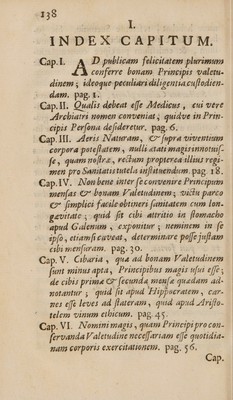 138
I.
INDEX CAPITUM.
Cap. I. AD publicam felicitatem plurimum
conferre bonam Principis valetu-
dinem; ideoque peculiari diligentia custodien-
dam. pag. 1.
Cap. II. Qualis debeat esse Medicus, cui vere
Archiatri nomen conveniat; quidve in Prin-
cipis Persona desideretur. pag. 6.
Cap. III. Aeris Naturam, & supra viventium
corpora potestatem, nulli ætati magis innotuis-
se, quam nostræ, rectum propterea illius regi-
men pro Sanitatis tutela instituendum. pag. 18.
Cap. IV. Non bene inter se convenire Principum
mensas & bonam Valetudinem; victu parco
& simplici facile obtineri sanitatem cum lon-
gævitate; quid sit cibi attritio in stomacho
apud Galenum, exponitur; neminem in se
ipso, etiamsi caveat, determinare posse justam
cibi mensuram. pag. 30.
Cap. V. Cibaria, qua ad bonam Valetudinem
sunt minus apta, Principibus magis usui esse;
de cibis prima & secunda mensa quadam ad-
notantur; quid sit apud Hippocratem, car-
nes esse leves ad stateram, quid apud Aristo-
telem vinum ethicum. pag. 45.
Cap. VI. Nomini magis, quam Principi pro con-
servanda Valetudine necessariam esse quotidia-
nam corporis exercitationem. pag. 56.
Cap.